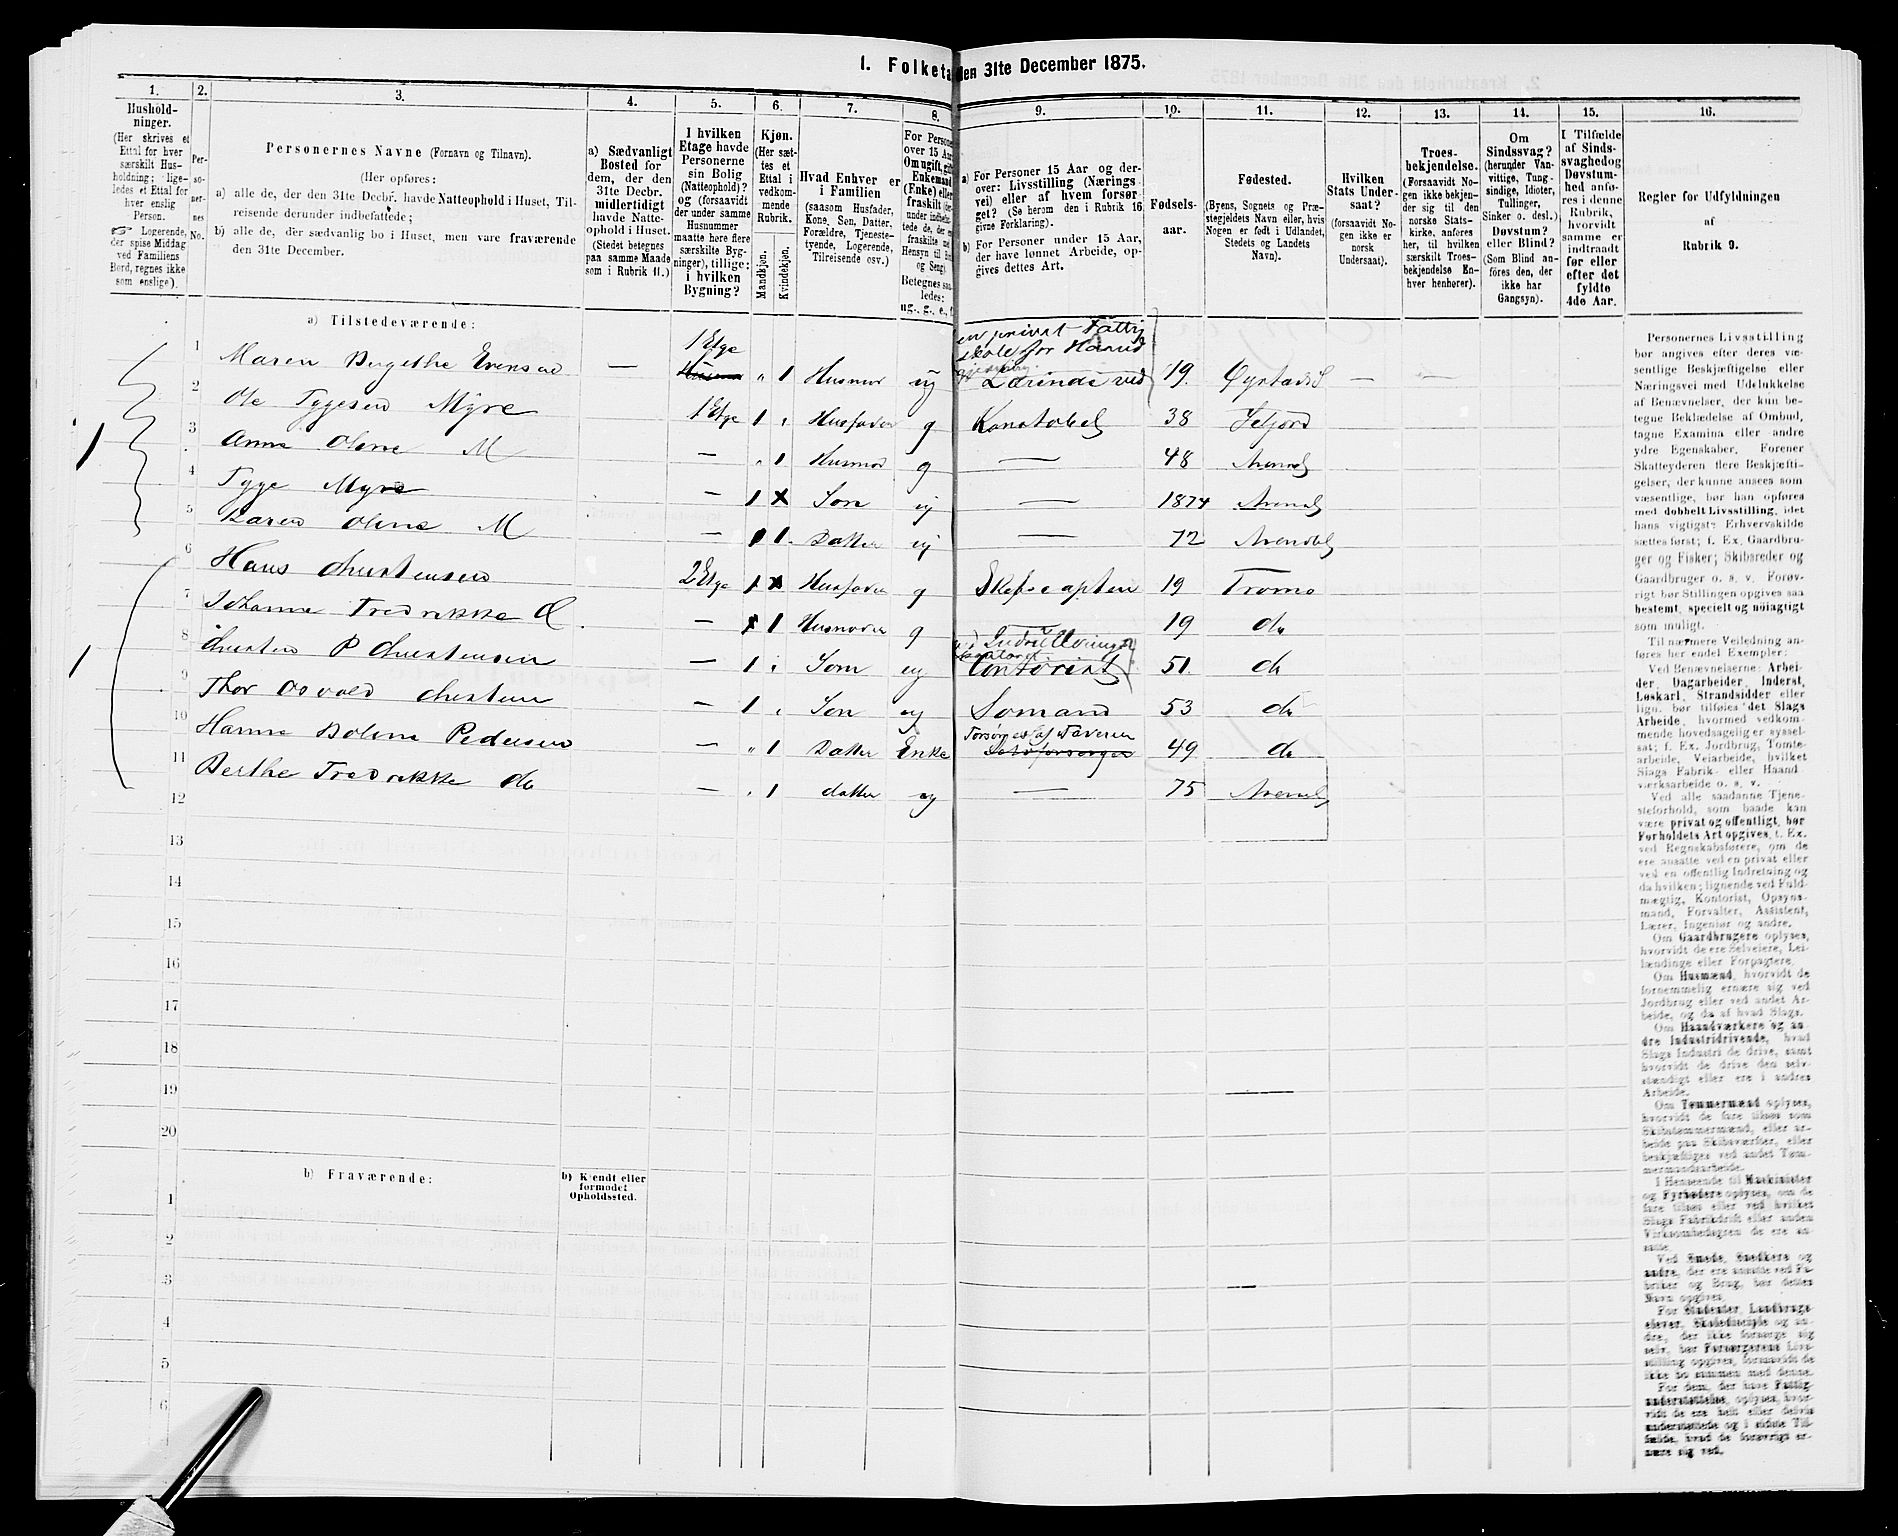 1. Folketæ
den 31te December 1875.
1.
2.
3.
4.
5.
6.
7.
8.
9.
10.
11.
12.
13.
14.
15.
16.
Hushold-
ninger.
(Her skrives et
Ettal for hver
særskilt Hus-
holdning; lige-
ledes et Ettal for
hver enslig
Person.
☞ Logerende,
der spise Middag
ved Familiens
Bord, regnes ikke
som enslige).
Per-
so-
ner-
nes
No.
Personernes Navne (Fornavn og Tilnavn).
(Her opføres:
a) alle de, der den 31te Decbr. havde Natteophold i Huset, Til-
reisende derunder indbefattede;
b) alle de, der sædvanlig bo i Huset, men vare fraværende
den 31te December.
a) Sædvanligt
Bosted for
dem, der den
31te Decbr.
midlertidigt
havde Natte-
ophold i Huset.
(Stedet betegnes
paa samme Maade
som i Rubrik 11.)
I hvilken
Etage havde
Personerne
sin Bolig
(Natteophold)?
og (forsaavidt
der under samme
Husnummer
maatte høre flere
særskilte Byg-
ninger), tillige:
i hvilken
Bygning?
Kjøn.
(Her sæt-
tes et
Ettal i
vedkom-
mende
Rubrik.
Mandkjøn.
Kvindekjøn.
Hvad Enhver er
i Familien
(saasom Husfader,
Kone, Søn, Datter,
Forældre, Tjeneste-
tyende, Logerende,
Tilreisende osv.)
For Persone
over 15 Aar
Omugift, gif
Enkemand
(Enke) elle
fraskilt (de
under indbe
tede de, der e
fraskilte me
Hensyn til B
og Seng).
Betegnes saa
ledes:
ug., g., e., f.
a) For Personer 15 Aar og der-
over: Livsstilling (Nærings
vei) eller af hvem forsør
get? (Se herom den i Rubrik 16
givne Forklaring).
b) For Personer under 15 Aar,
der have lønnet Arbeide, op-
gives dettes Art.
Fødsels-
aar.
Fødested.
(Byens, Sognets og Præ-
stegjeldets Navn eller, hvis
Nogen er født i Udlandet,
Stedets og Landets
Navn).
Hvilken
Stats Under-
saat?
(forsaavidt No-
gen ikke er
norsk
Undersaat).
Troes-
bekjendelse.
(Forsaavidt No-
gen ikke bekjen-
der sig til den
norske Stats-
kirke, anføres
her, til hvilken
særskilt Troes-
bekjendelse En-
hver henhører).
Om
Sindssvag?
(herunder Van-
vittige, Tung-
sindige, Idioter,
Tullinger,
Sinker o. desl.).
Døvstum?
eller Blind?
(Som Blind an-
føres den, der
ikke har
Gangsyn).
I Tilfælde
af Sinds-
svaghed og
Døvstum-
hed anfø-
res i denne
Rubrik,
hvorvidt
samme er
indtraadt
før eller
efter det
fyldte
4de Aar.
Regler for Udfyldningen
af
Rubrik 9.
a) Tilstedeværende:
1 Maren Birgethe Evensen — 1 Etge „ 1 Husmor ug en privat Fattigskole for Haand Lærinde ved 19. Øyestad — —
2 Ole Tygesen Myre 1 Etge 1 , Husfader g Konstabel 38 Seljord
3 Anne Oline M — „ 1 Husmor g — 48 Arendal
4 Tyge Myre — 1 Søn ug — 1874 Arendal
5 Karen Oline M — 1 Datter ug — 72 Arendal
6 Hans Christensen 2 Etge 1 Husfader g Skibscaptein 19 Tromø
7 Johanne Fredrikke C. — 1 Husmoder g — 19 do
8 Christen P Christensen — 1 , Søn ug Contorist 51. do
9 Thor Osvald Christen — 1 , Søn ug Sømand 53 do
10 Hanne Doline Pedersen — „ 1 Datter Enke Forsørges af Faderen 49 do
11 Berthe Fredrikke do — . 1 datter ug — 75 Arendal
12
13
14
15
16
17
18
19
20
b) Fraværende:
b) Kjendt eller
formodet
Opholdssted.
1
2
3
4
5
6
Personernes Livsstilling
bør angives efter deres væ-
sentlige Beskjæftigelse eller
Næringsvei med Udelukkelse
af Benævnelser, der kun be-
tegne Beklædelse af Ombud,
tagne Examina eller andre
ydre Egenskaber. Forener
Skatteyderen flere Beskjæfti-
gelser, der kunne ansees som
væsentlige, bør han opføres
med dobbelt Livsstilling, idet
hans vigtigste Erhvervskilde
sættes først; f. Ex. Gaardbru-
ger og Fisker; Skibsreder og
Gaardbruger o. s. v. Forøv-
rigt bør Stillingen opgives saa
bestemt, specielt og nøiagtigt
som muligt.
Til nærmere Veiledning an-
føres her endel Exempler:
Ved Benævnelserne: Arbei-
der, Dagarbeider, Inderst,
Løskarl, Strandsidder eller
lign. bør tilføies det Slags
Arbeide, hvormed vedkom-
mende hovedsagelig er syssel-
sat; f. Ex. Jordbrug, Tomte-
arbeide, Veiarbeide, hvilket
Slags Fabrik- eller Haand
værksarbeide o. s. v.
Ved alle saadanne Tjene-
steforhold, som baade kan
være privat og offentligt, bør
Forholdets Art opgives, f. Ex.
ved Regnskabsførere, om de
ere ansatte ved en privat eller
ved en offentlig Indretning og
da hvilken; lignende ved Fuld-
mægtig, Kontorist, Opsyns-
mand, Forvalter, Assistent,
Lærer, Ingeniør og andre.
Om Gaardbrugere oplyses,
hvorvidt de ere Selveiere, Lei-
lændinge eller Forpagtere.
Om Husmænd, hvorvidt de
fornemmelig ernære sig ved
Jordbrug eller ved andet Ar-
beide, og da af hvad Slags.
Om Haandværkere og an-
dre Industridrivende, hvad
Slags Industri de drive, samt
hvorvidt de drive den selv-
stændigt eller ere i andres
Arbeide.
Om Tømmermænd oplyses,
hvorvidt de fare tilsøs som
Skibstømmermænd, eller ar-
beide paa Skibsværfter, eller
beskjæftiges ved andet Tøm-
mermandsarbeide.
I Henseende til Maskinister
og Fyrbødere oplyses, om de
fare tilsøs eller ved hvilket
Slags Fabrikdrift eller anden
Virksomhedsgren de ere an-
satte.
Ved Smede, Snedkere og
andre, der ere ansatte ved Fa-
briker og Brug, bør dettes
Navn opgives.
For Studenter, Landbrugs-
elever, Skoledisciple og an-
dre, der ikke forsørge sig
selv, bør Forsørgerens Livs-
stilling opgives, forsaavidt de
ikke bo sammen med denne.
For dem, der have Fattig-
understøttelse, oplyses, hvor-
vidt de ere helt eller delvis
understøttede og i sidste Til-
fælde, hvad de forøvrigt er-
nære sig ved.